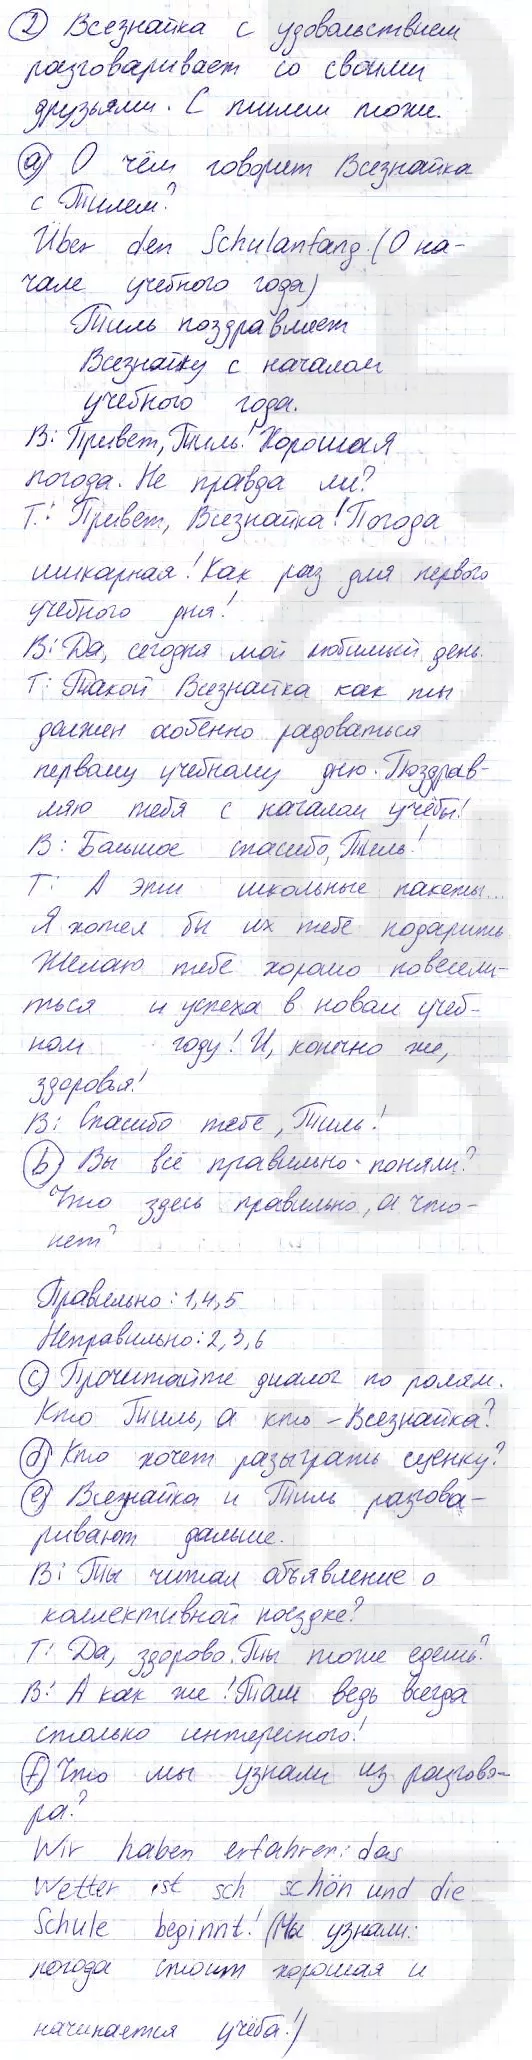 2 Всезнайка с удовольствием
разговаривает со своими
друзьями. С Тилем тоже.
a) О чём говорит Всезнайка
с Тилем?
Über den Schulanfang. (О на-
чале учебного года)
Тиль поздравляет
Всезнайку с началом
учебного года.
В: Привет, Тиль! Хорошая
погода. Не правда ли?
Т: Привет, Всезнайка! Погода
шикарная! Как раз для первого
учебного дня!
В: Да, сегодня мой любимый день.
Т: Такой Всезнайка как ты
должен особенно радоваться
первому учебному дню. Поздрав-
ляю тебя с началом учёбы!
В: Большое спасибо, Тиль!
Т: А эти школьные пакеты...
Я хотел бы их тебе подарить
Желаю тебе хорошо повесели-
ться и успеха в новом учеб-
ном году! И, конечно же,
здоровья!
В: Спасибо тебе, Тиль!
b) Вы всё правильно поняли?
Что здесь правильно, а что-
нет?
Правильно: 1,4,5
Неправильно: 2,3,6
c) Прочитайте диалог по ролям.
Кто Тиль, а кто - Всезнайка?
d) Кто хочет разыграть сценку?
e) Всезнайка и Тиль разгова-
ривают дальше.
В: Ты читал объявление о
коллективной поездке?
Т: Да, здорово. Ты тоже едешь?
В: А как же! Там ведь всегда
столько интересного!
f) Что мы узнали из разгово-
ра?
Wir haben erfahren: das
Wetter ist sch schön und die
Schule beginnt! (Мы узнали:
погода стоит хорошая и
начинается учёба!)